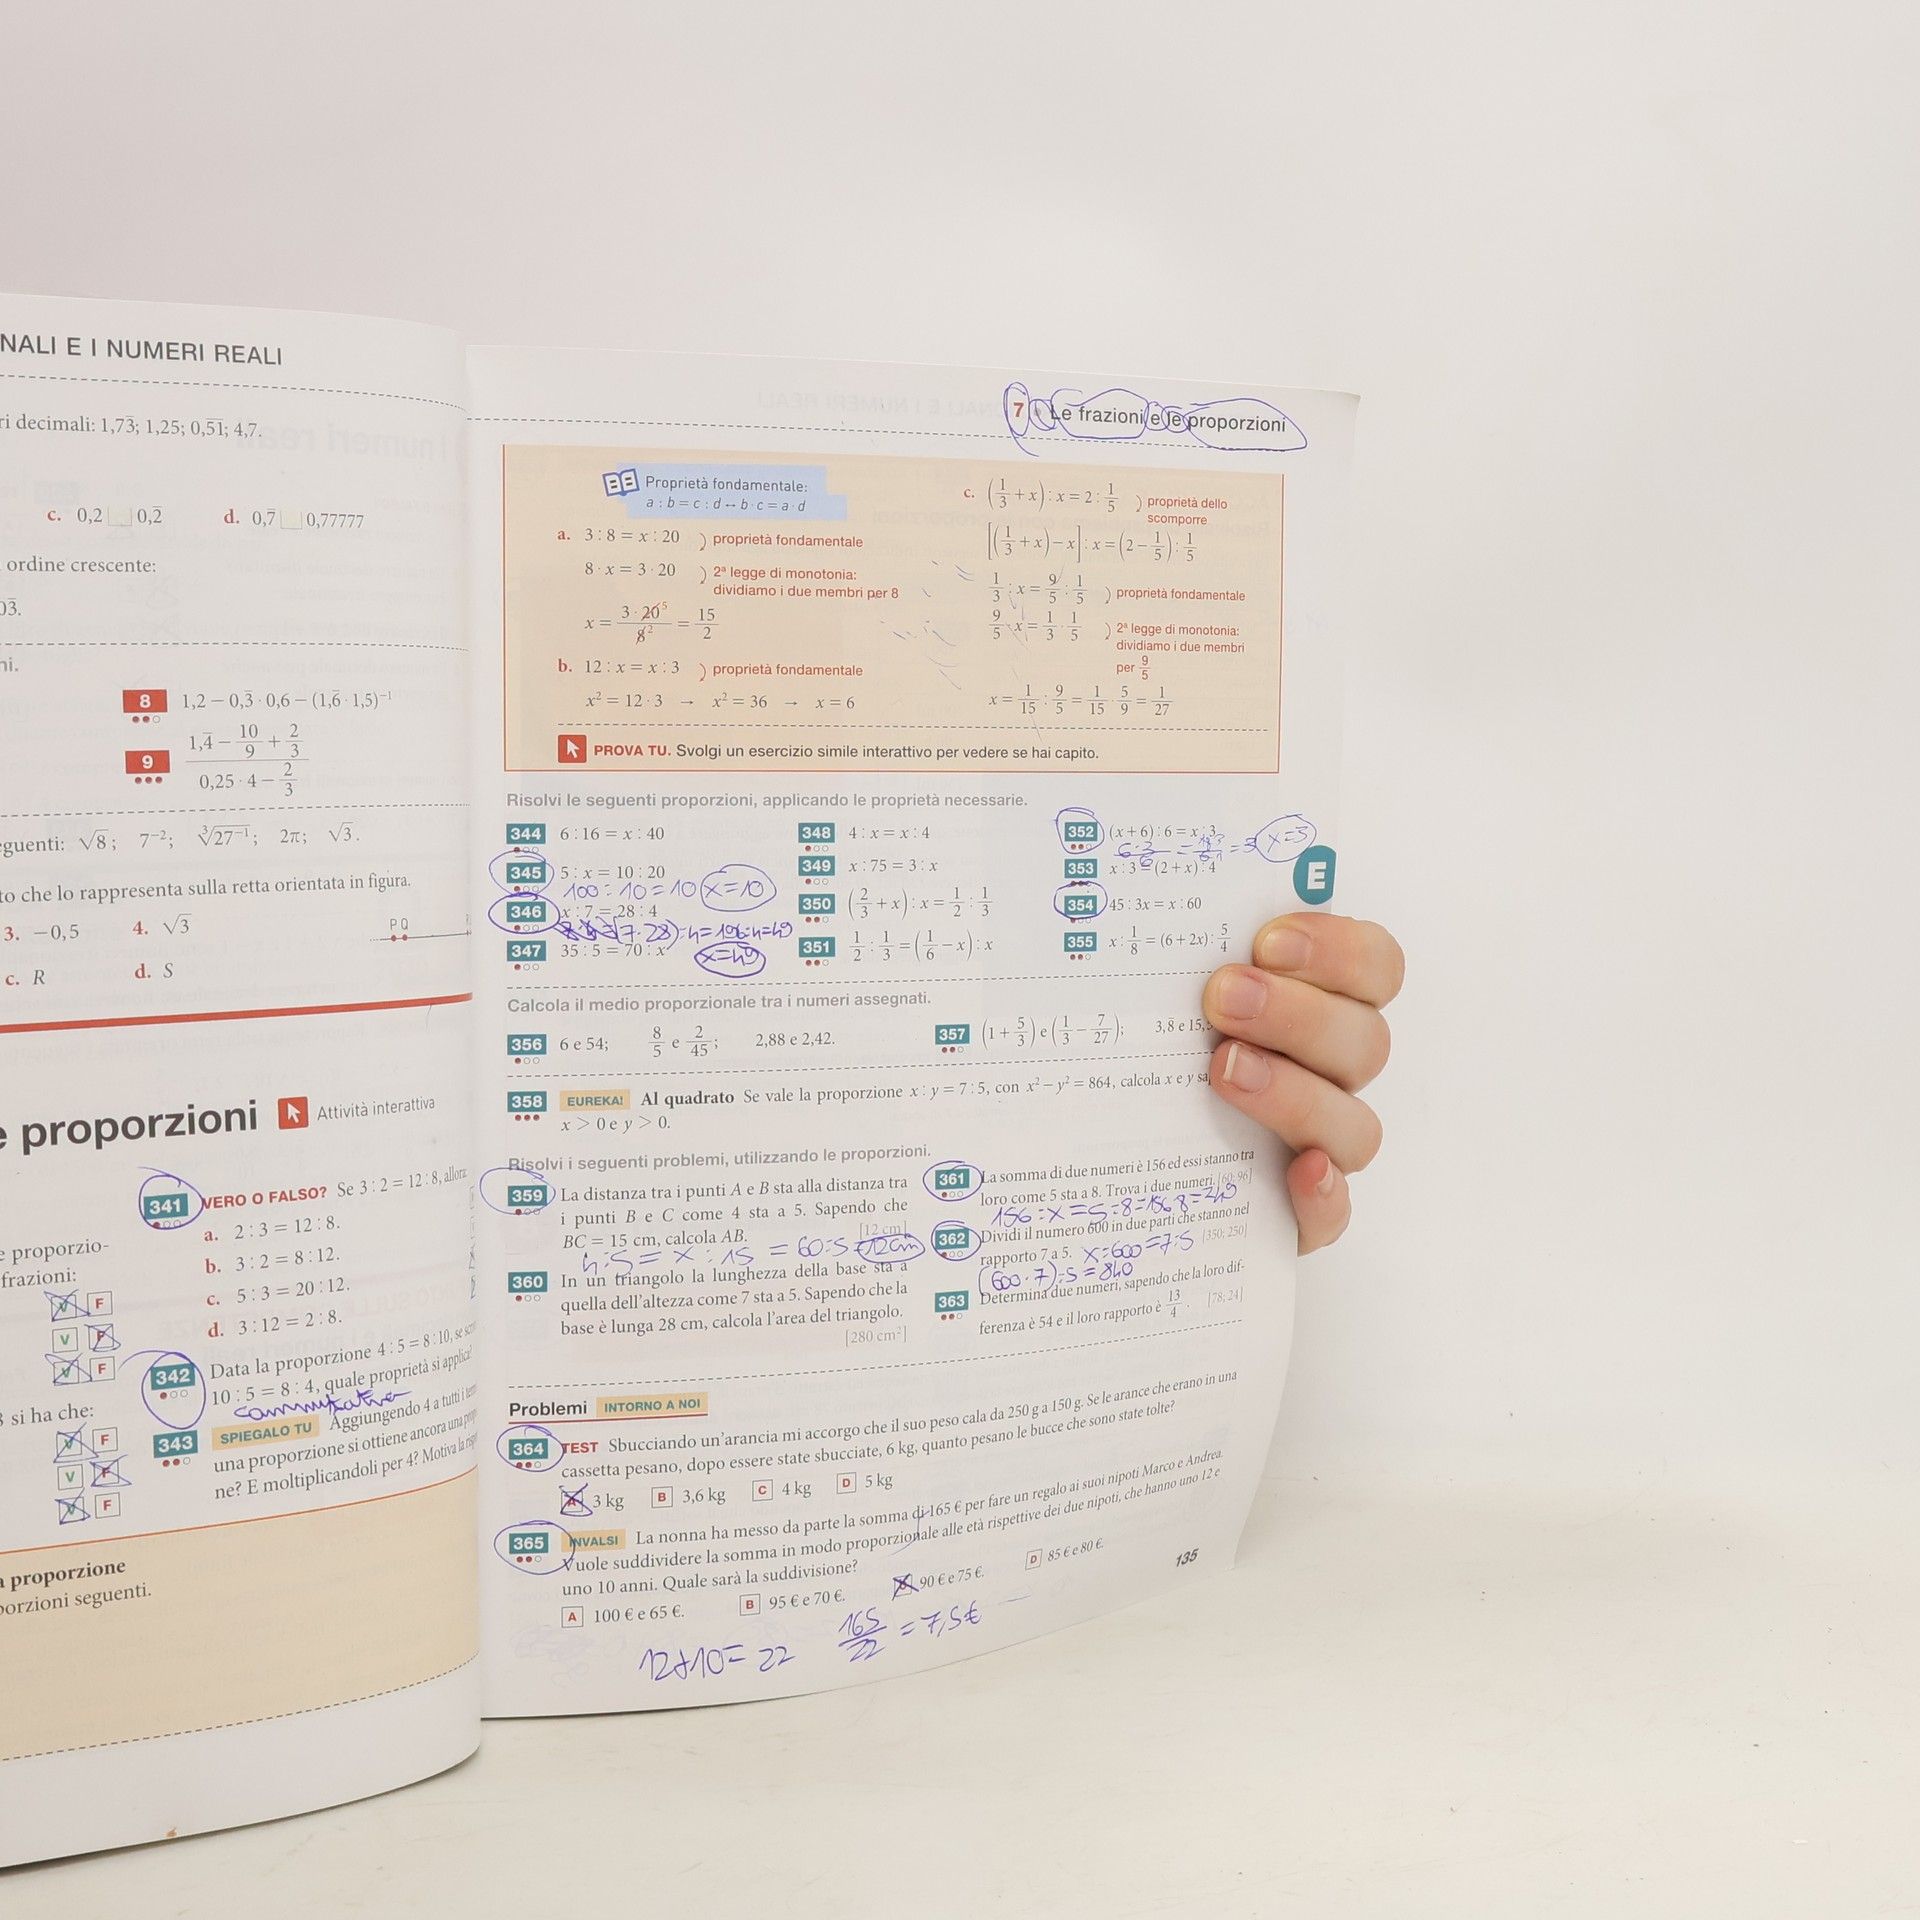 NALI E I NUMERI REALI
ri decimali: 1,73̅; 1,25; 0,5̅1̅; 4,7.
c. 0,2 0,2̅ d. 0,7̅ 0,77777
ordine crescente:
03̅.
ni.
8 1,2 − 0,3̅ · 0,6 − (1,6̅ · 1,5)⁻¹
9 (1,4̅ − 10/9 + 2/3) / (0,25 · 4 − 2/3)
eguenti: √8; 7⁻²; ∛27⁻¹; 2π; √3.
to che lo rappresenta sulla retta orientata in figura.
3. −0,5 4. √3 P Q
c. R d. S
e proporzioni Attività interattiva
341 VERO O FALSO? Se 3 : 2 = 12 : 8, allora
a. 2 : 3 = 12 : 8.
b. 3 : 2 = 8 : 12.
c. 5 : 3 = 20 : 12.
d. 3 : 12 = 2 : 8.
e proporzio-
frazioni:
V F
V F
V F
342 Data la proporzione 4 : 5 = 8 : 10, se
10 : 5 = 8 : 4, quale proprietà si applica?
commutativa
si ha che:
V F
V F
V F
343 SPIEGALO TU Aggiungendo 4 a tutti i
una proporzione si ottiene ancora una
ne? E moltiplicandoli per 4? Motiva la
a proporzione
porzioni seguenti.
7 Le frazioni e le proporzioni
Proprietà fondamentale:
a : b = c : d ↔ b · c = a · d
a. 3 : 8 = x : 20 ) proprietà fondamentale
8 · x = 3 · 20 ) 2ª legge di monotonia:
dividiamo i due membri per 8
x = 3 · 20⁵ / 8² = 15/2
b. 12 : x = x : 3 ) proprietà fondamentale
x² = 12 · 3 → x² = 36 → x = 6
c. (1/3 + x) : x = 2 : 1/5 ) proprietà dello
scomporre
[(1/3 + x) − x] : x = (2 − 1/5) : 1/5
1/3 : x = 9/5 : 1/5 ) proprietà fondamentale
9/5 · x = 1/3 · 1/5 ) 2ª legge di monotonia:
dividiamo i due membri
per 9/5
x = 1/15 : 9/5 = 1/15 · 5/9 = 1/27
PROVA TU. Svolgi un esercizio simile interattivo per vedere se hai capito.
Risolvi le seguenti proporzioni, applicando le proprietà necessarie.
344 6 : 16 = x : 40
345 5 : x = 10 : 20
100 : 10 = 10 x = 10
346 x : 7 = 28 : 4
(7·28) : 4 = 196 : 4 = 49
347 35 : 5 = 70 : x
x = 49
348 4 : x = x : 4
349 x : 75 = 3 : x
350 (2/3 + x) : x = 1/2 : 1/3
351 1/2 : 1/3 = (1/6 − x) : x
352 (x + 6) : 6 = x : 3
= 3 x = 3
353 x : 3 = (2 + x) : 4
354 45 : 3x = x : 60
355 x : 1/8 = (6 + 2x) : 5/4
E
Calcola il medio proporzionale tra i numeri assegnati.
356 6 e 54; 8/5 e 2/45; 2,88 e 2,42.
357 (1 + 5/3) e (1/3 − 7/27); 3,8̅ e 15,
358 EUREKA! Al quadrato Se vale la proporzione x : y = 7 : 5, con x² − y² = 864, calcola x e y
x > 0 e y > 0.
Risolvi i seguenti problemi, utilizzando le proporzioni.
359 La distanza tra i punti A e B sta alla distanza tra
i punti B e C come 4 sta a 5. Sapendo che
BC = 15 cm, calcola AB. [12 cm]
4 : 5 = x : 15 = 60 : 5 = 12 cm
360 In un triangolo la lunghezza della base sta a
quella dell'altezza come 7 sta a 5. Sapendo che la
base è lunga 28 cm, calcola l'area del triangolo.
[280 cm²]
361 La somma di due numeri è 156 ed essi stanno tra
loro come 5 sta a 8. Trova i due numeri. [60; 96]
156 : x = 5 : 8 = 156 8 = 249
362 Dividi il numero 600 in due parti che stanno nel
rapporto 7 a 5. [350; 250]
x : 600 = 7 : 5
(600 · 7) : 5 = 840
363 Determina due numeri, sapendo che la loro dif-
ferenza è 54 e il loro rapporto è 13/4. [78; 24]
Problemi INTORNO A NOI
364 TEST Sbucciando un'arancia mi accorgo che il suo peso cala da 250 g a 150 g. Se le arance che erano in una
cassetta pesano, dopo essere state sbucciate, 6 kg, quanto pesano le bucce che sono state tolte?
A 3 kg B 3,6 kg C 4 kg D 5 kg
365 INVALSI La nonna ha messo da parte la somma di 165 € per fare un regalo ai suoi nipoti Marco e Andrea.
Vuole suddividere la somma in modo proporzionale alle età rispettive dei due nipoti, che hanno uno 12 e
uno 10 anni. Quale sarà la suddivisione?
A 100 € e 65 €. B 95 € e 70 €. C 90 € e 75 €. D 85 € e 80 €.
12 + 10 = 22 165/22 = 7,5 €
135